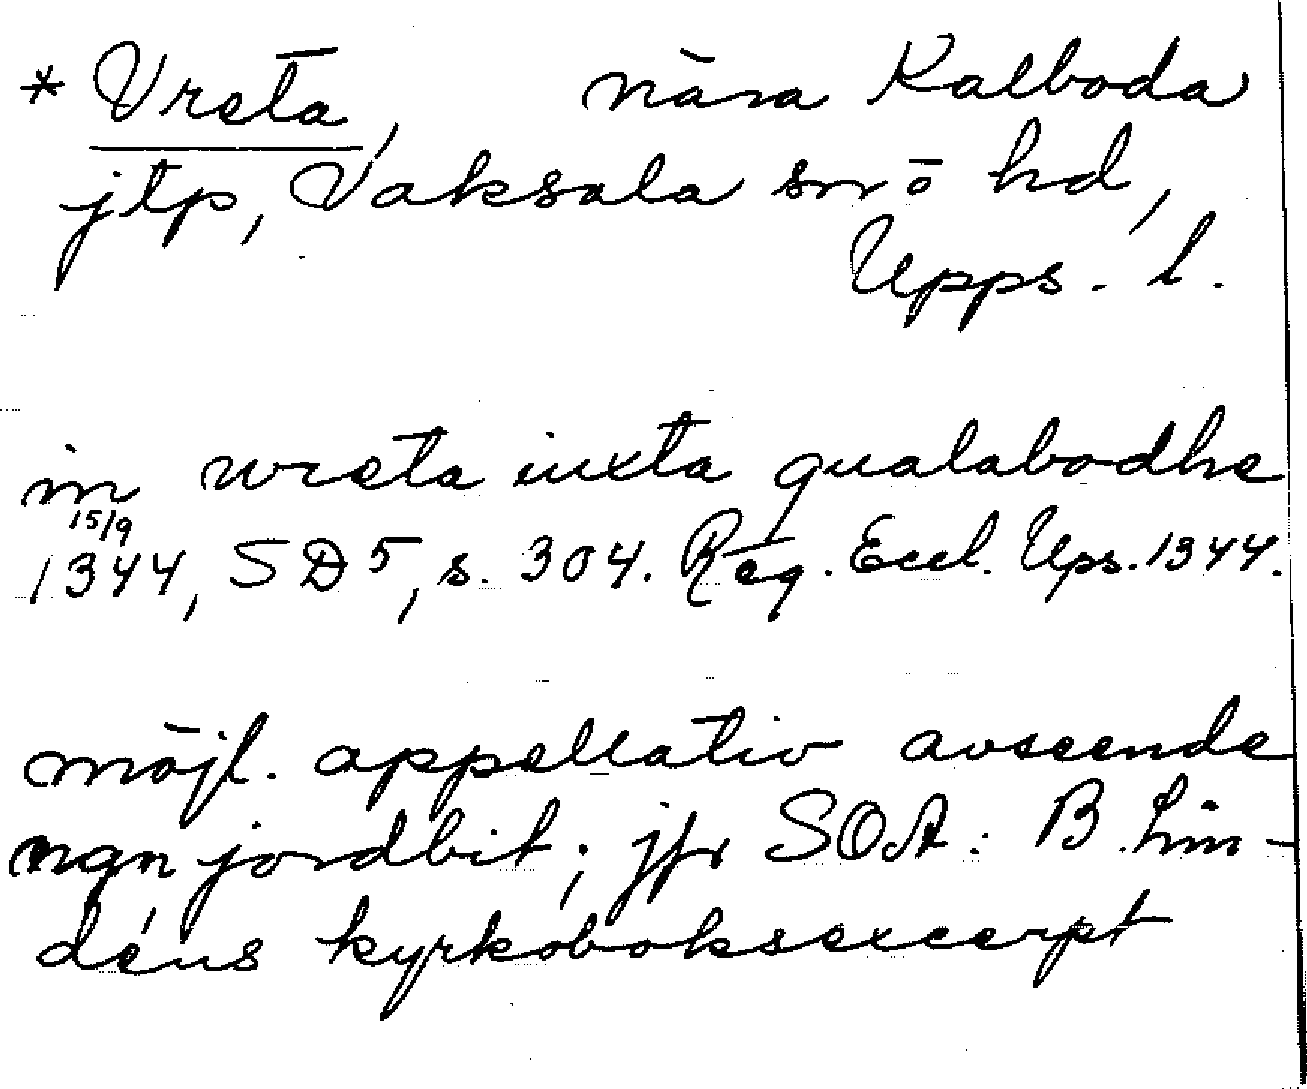 * Vreta, nära Kalboda
jtp, Vaksala sn o hd,
Upps. l.
in wreta iuxta qualabodhe
15/9
1344, SD 5, s. 304. Reg. Eccl. Ups. 1344.
möjl. appellativ avseende
ngn jordbit; jfr SOA: B. Lin-
déns kyrkoboksexcerpt